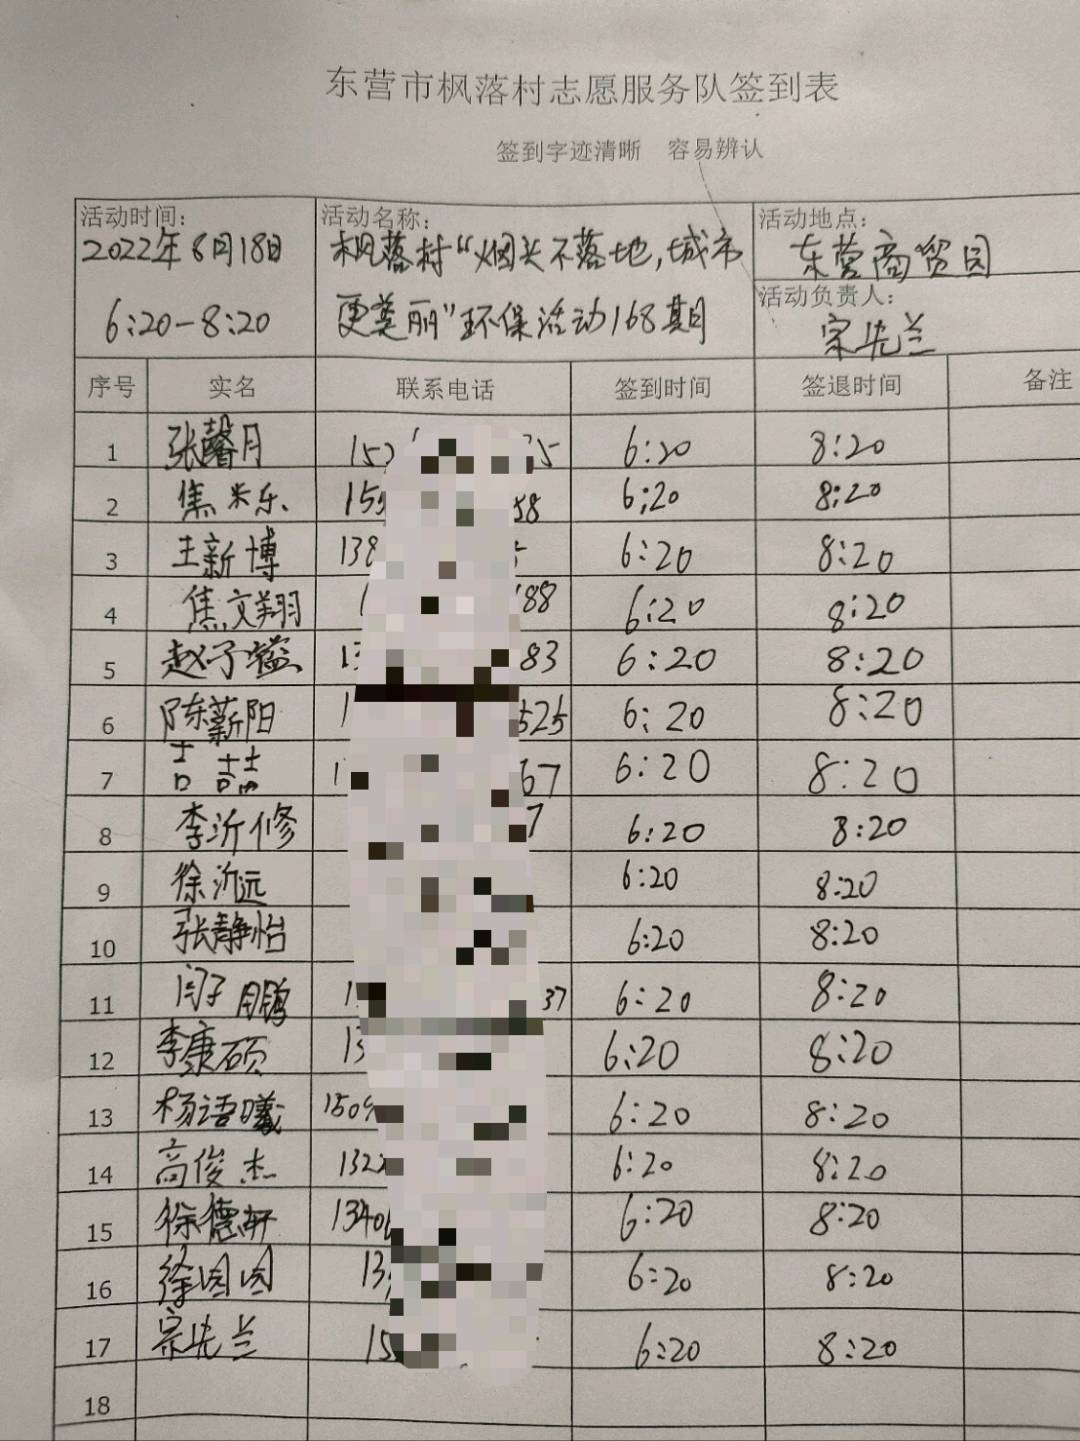 东营市枫落村志愿服务队签到表
签到字迹清晰 容易辨认
活动时间: 活动名称: 活动地点:
2022年8月18日 枫落村“烟头不落地,城市 东营商贸园
6:20-8:20 更美丽”环保活动168期 活动负责人:
宗先兰
序号 实名 联系电话 签到时间 签退时间 备注
1 张馨月 152 5 6:20 8:20
2 焦米乐 155 58 6:20 8:20
3 王新博 138 6:20 8:20
4 焦文翔 188 6:20 8:20
5 赵子 13 83 6:20 8:20
6 陈薪阳 1 525 6:20 8:20
7 吉喆 1 67 6:20 8:20
8 李沂修 7 6:20 8:20
9 徐沂远 6:20 8:20
10 张静怡 6:20 8:20
11 闫子鹏 1 37 6:20 8:20
12 李康硕 13 6:20 8:20
13 杨语曦 1509 6:20 8:20
14 高俊杰 132 6:20 8:20
15 徐德轩 1340 6:20 8:20
16 徐图图 13 6:20 8:20
17 宗先兰 15 6:20 8:20
18